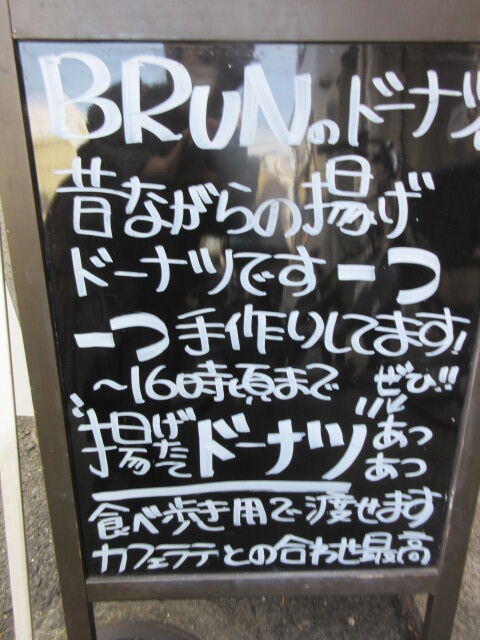 BRUNのドーナツ
昔ながらの揚げ
ドーナツです一つ
一つ手作りしてます!
～16時頃まで ぜひ!!
揚げたてドーナツ あつあつ
食べ歩き用で渡せます
カフェラテとの合わせ最高